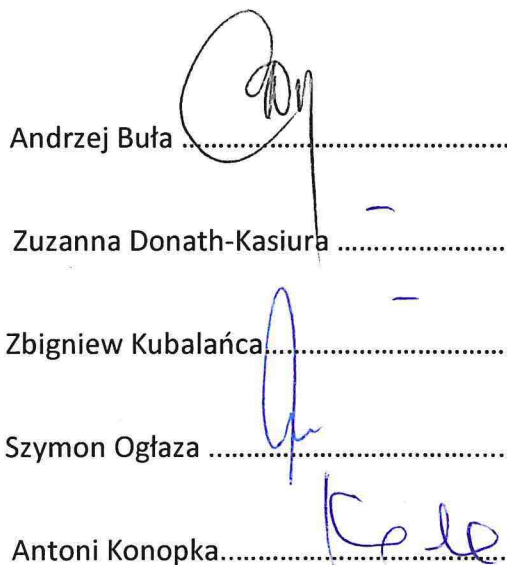 Andrzej Buła ....................................................
Zuzanna Donath-Kasiura ...........................
–
Zbigniew Kubalańca.......................................
–
Szymon Ogłaza ...............................................
Antoni Konopka..............................................